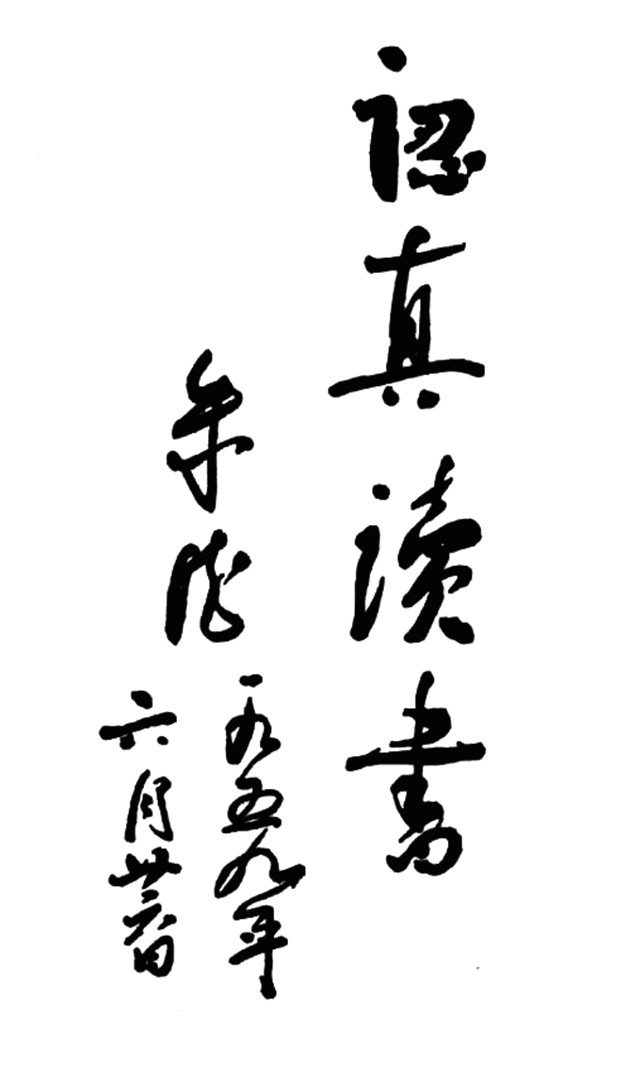 認真讀書
朱德
一九五九年
六月廿六日